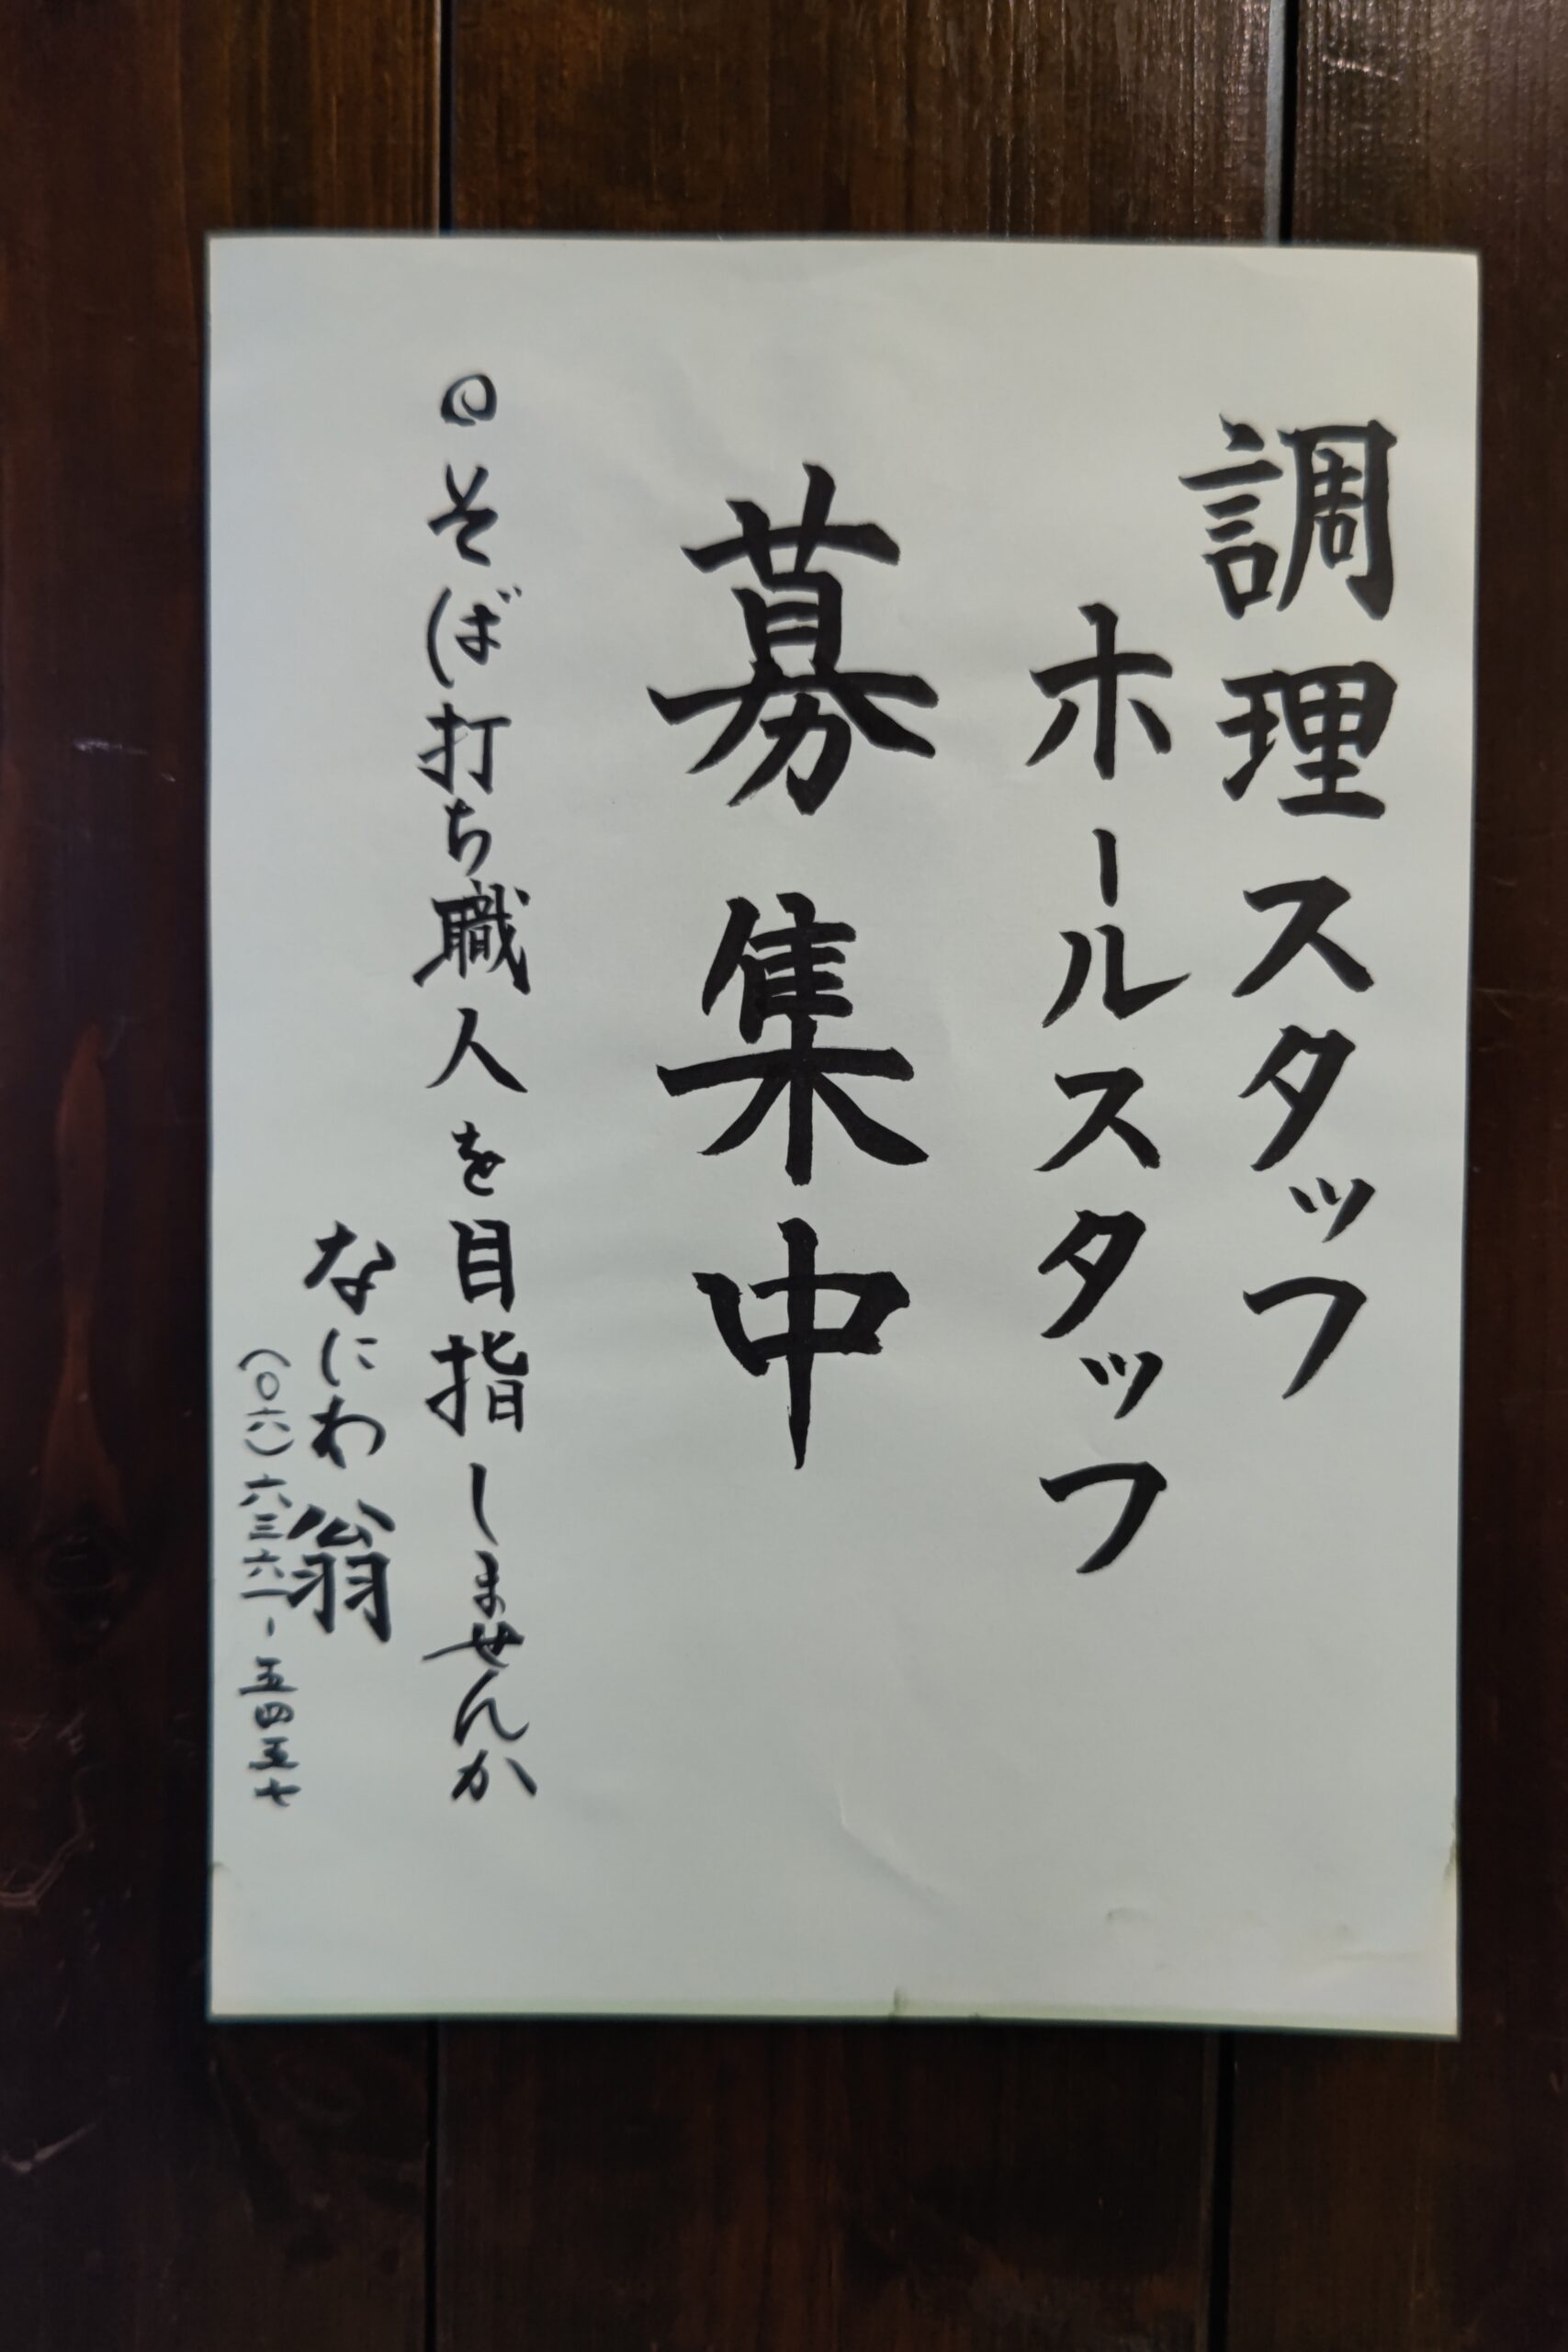 調理スタッフ
ホールスタッフ
募集中
◎そば打ち職人を目指しませんか
なにわ翁
(〇六)六三六一-五四五七